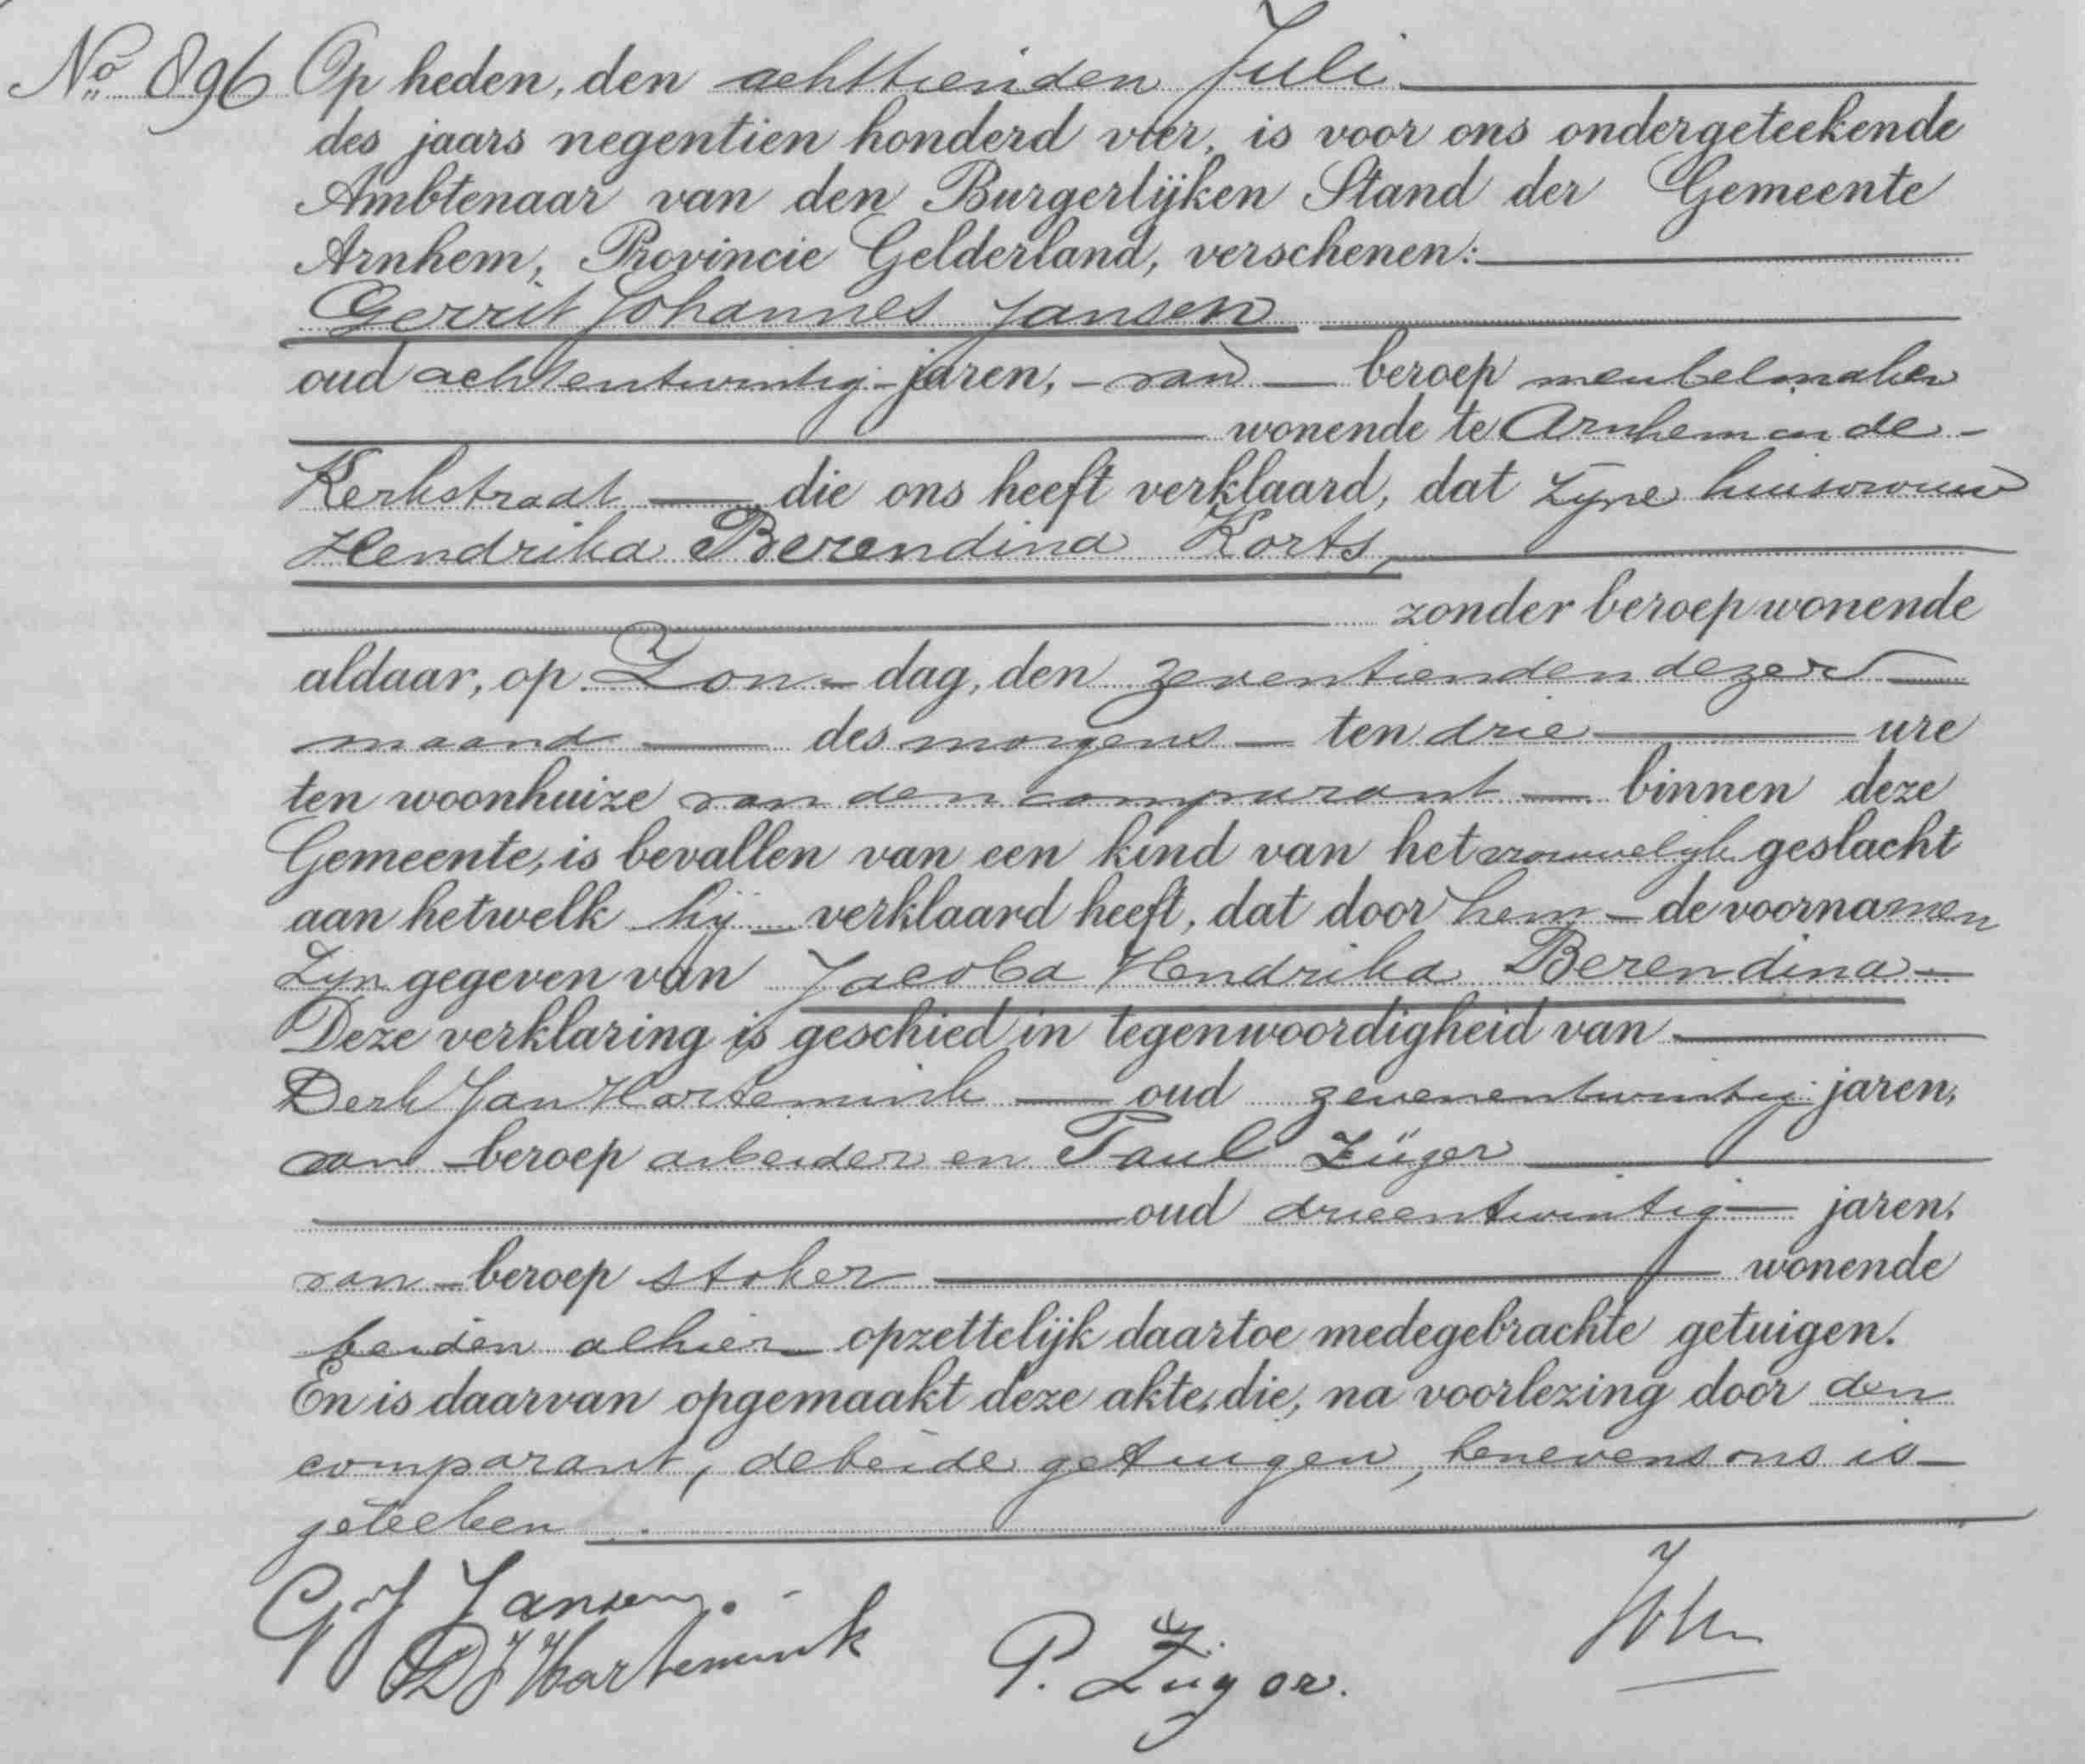 No 896 Op heden, den achttienden Juli
des jaars negentien honderd vier, is voor ons ondergeteekende
Ambtenaar van den Burgerlijken Stand der Gemeente
Arnhem, Provincie Gelderland, verschenen:
Gerrit Johannes Jansen
oud achtentwintig jaren, van beroep meubelmaker
wonende te Arnhem in de
Kerkstraat die ons heeft verklaard, dat zijne huisvrouw
Hendrika Berendina Korts,
zonder beroep wonende
aldaar, op Zondag, den zeventienden dezer
maand des morgens ten drie ure
ten woonhuize van den comparant binnen deze
Gemeente, is bevallen van een kind van het vrouwelijk geslacht
aan hetwelk hij verklaard heeft, dat door hem de voornamen
zijn gegeven van Jacoba Hendrika Berendina
Deze verklaring is geschied in tegenwoordigheid van
Derk Jan Hartemink oud zevenentwintig jaren,
van beroep arbeider en Paul Züger
oud drieentwintig jaren,
van beroep stoker wonende
beiden alhier opzettelijk daartoe medegebrachte getuigen.
En is daarvan opgemaakt deze akte, die, na voorlezing door den
comparant, de beide getuigen, benevens ons is
geteeken
G J Jansen.
D J Hartemink
P. Züger.